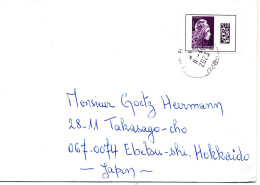 Monsieur Goetz Heermann
28-11 Takasago-cho
067-0074 Ebetsu-shi, Hokkaido
- Japon -